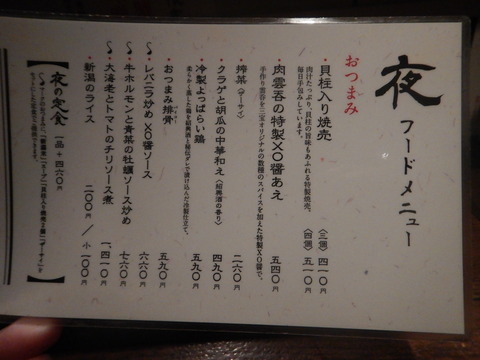 夜 フードメニュー
おつまみ
・貝柱入り焼売 〈三個〉四一〇円
〈四個〉五一〇円
肉汁たっぷり、貝柱の旨味もあふれる特製焼売。
毎日手包みしています。
・肉雲呑の特製XO醤あえ 五四〇円
手作り雲呑を三宝オリジナルの数種のスパイスを加えた特製XO醤で。
・搾菜〈ザーサイ〉 二六〇円
・クラゲと胡瓜の中華和え〈紹興酒の香り〉 四九〇円
・冷製よっぱらい鶏 五九〇円
柔らかく蒸した鶏を紹興酒と秘伝ダレで漬け込んだ冷製仕立て。
・おつまみ排骨 五九〇円
・レバニラ炒め XO醤ソース 六六〇円
・牛ホルモンと青菜の牡蠣ソース炒め 七六〇円
・大海老とトマトのチリソース煮 一、四一〇円
・新潟のライス 二〇〇円/小一〇〇円
夜の定食 一品+四六〇円